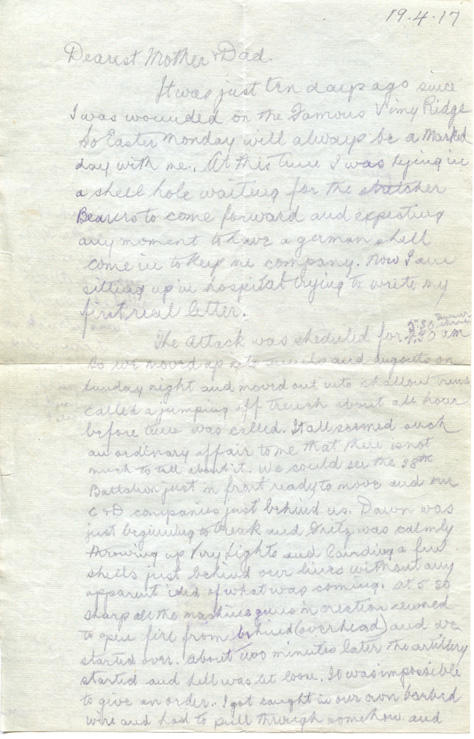 19.4.17
Dearest Mother & Dad.
It was just ten days ago since
I was wounded on the Famous Vimy Ridge
So Easter Monday will always be a Marked
day with me. At this time I was lying in
a shell hole waiting for the stretcher
Bearers to come forward and expecting
any moment to have a german shell
come in to keep me company. Now I am
sitting up in hospital trying to write my
first real letter.
The Attack was sheduled for 5.30
So we moved up into and dugouts on
Sunday night and moved out into shallow
called a jumping off trench about an hour
before time was called. It all seemed such
an ordinary affair to me that there is not
much to tell about it. We could see the 38th
Battalion just in front ready to move and our
C & D companies just behind us. Dawn was
just beginning to break and Fritz was calmly
throwing up Very Lights and landing a few
shells just behind our lines without any
apparent idea of what was coming. At 5.30
sharp all the machine guns in creation seemed
to open fire from behind (overhead) and we
started over. About two minutes later the artillery
started and hell was let loose. It was impossible
to give an order. I got caught in our own barbed
wire and had to pull through somehow and